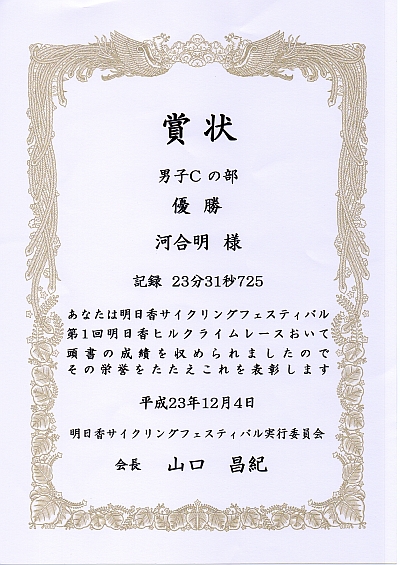 賞状
男子Cの部
優勝
河合明 様
記録 23分31秒725
あなたは明日香サイクリングフェスティバル
第1回明日香ヒルクライムレースおいて
頭書の成績を収められましたので
その栄誉をたたえこれを表彰します
平成23年12月4日
明日香サイクリングフェスティバル実行委員会
会長 山口 昌紀